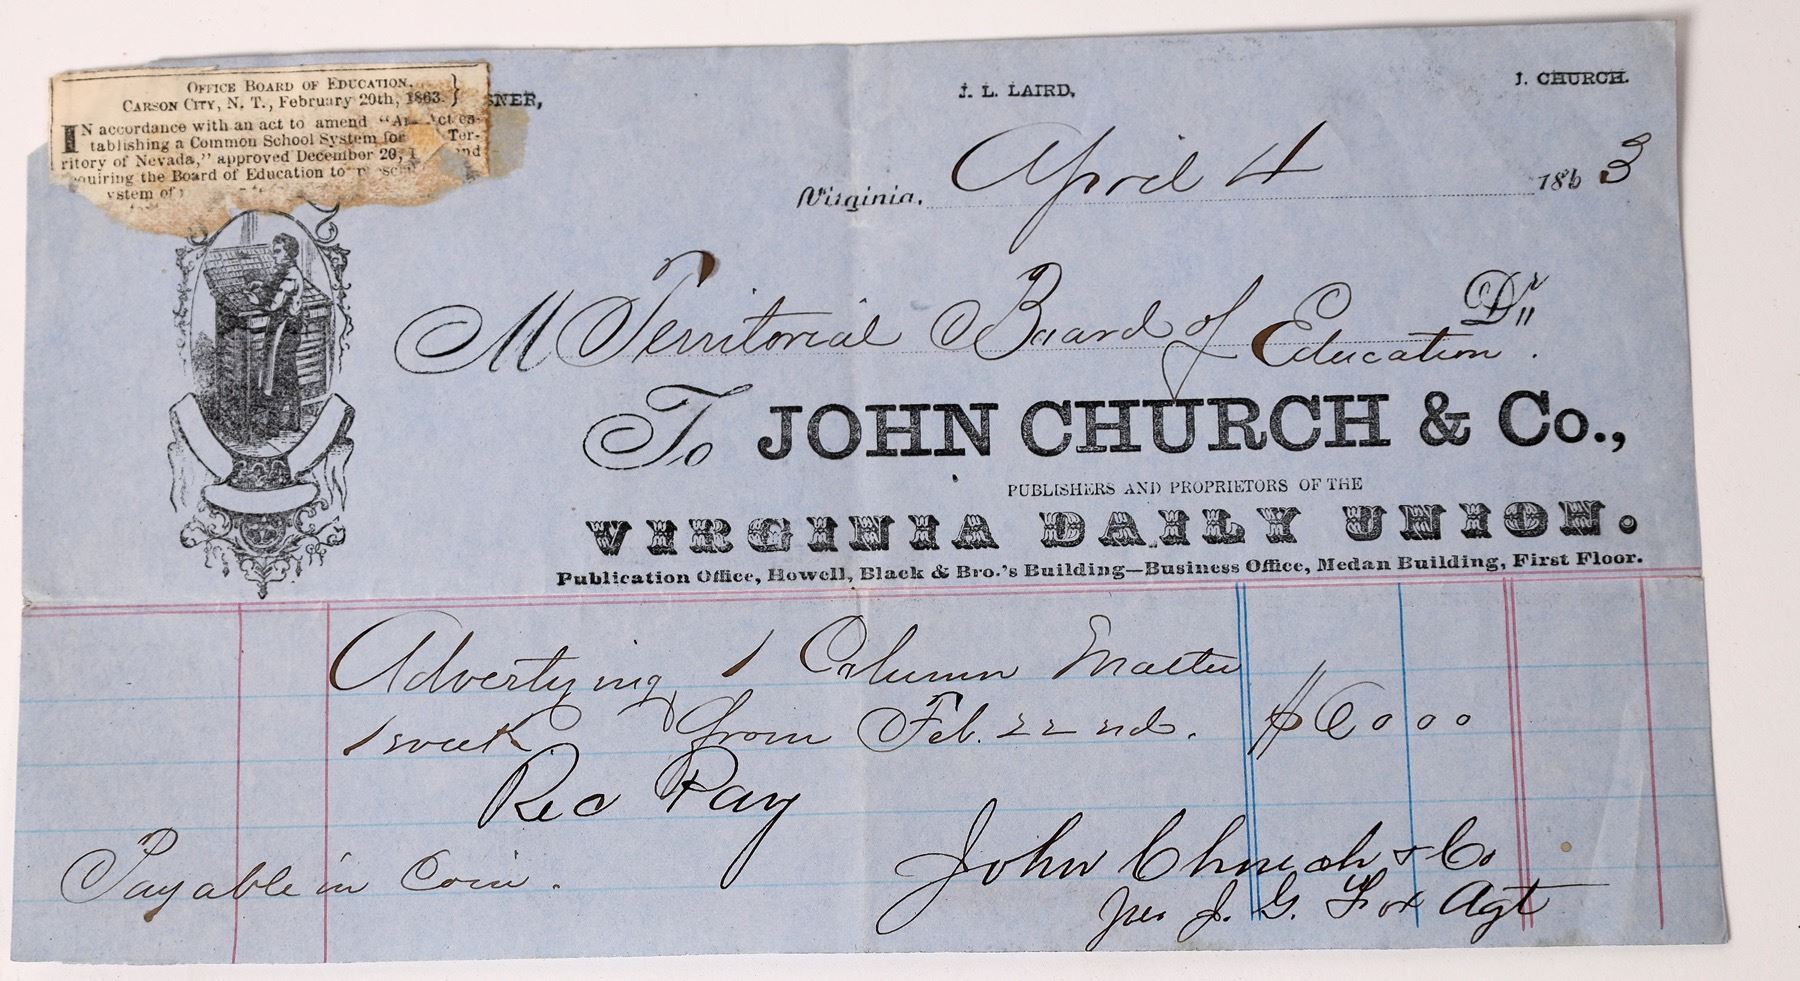 OFFICE BOARD OF EDUCATION,
CARSON CITY, N. T., February 20th, 1863.
IN accordance with an act to amend "An Act es-
tablishing a Common School System for Ter-
ritory of Nevada," approved December 20, and
quiring the Board of Education to
ystem of
SNER,
J. L. LAIRD,
J. CHURCH.
Virginia, April 4 1863
M Territorial Board of Education Dr
To JOHN CHURCH & Co.,
PUBLISHERS AND PROPRIETORS OF THE
VIRGINIA DAILY UNION.
Publication Office, Howell, Black & Bro.'s Building—Business Office, Medan Building, First Floor.
Advertying 1 Column Matter
1 week from Feb. 22nd. $60 00
Rec Pay
Payable in Coin.
John Church & Co
per J. G. Fox Agt